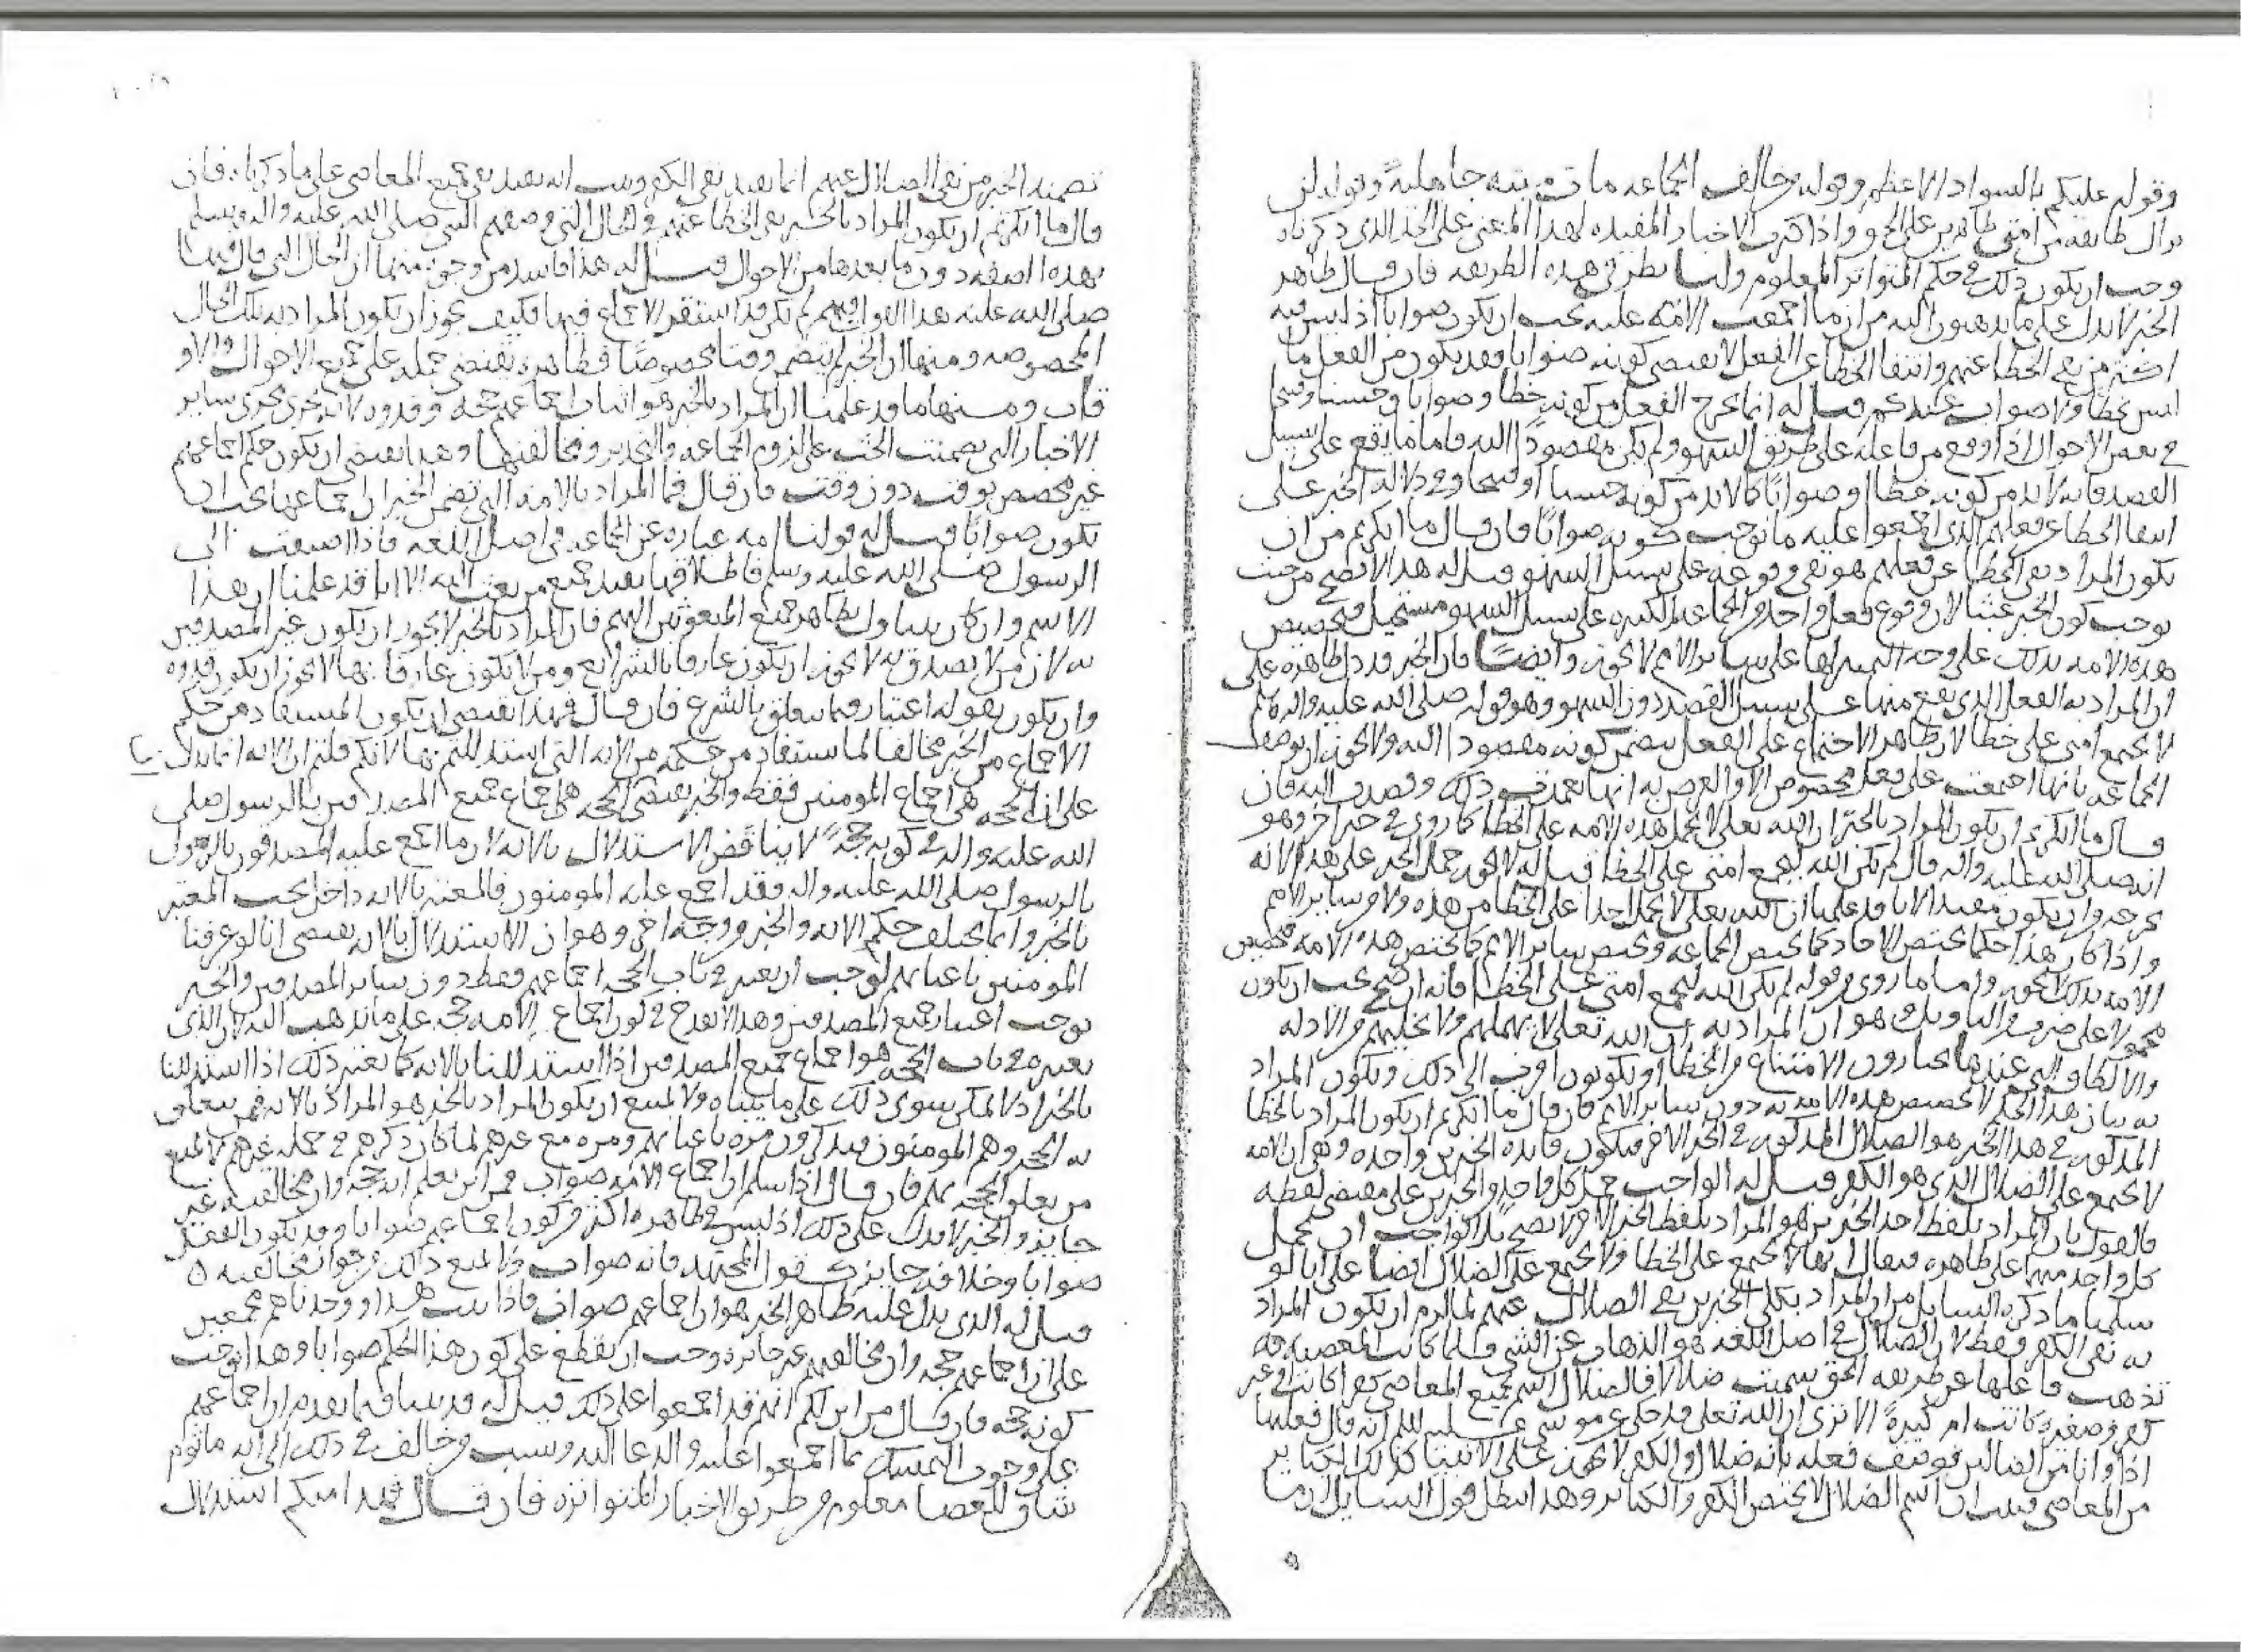 وقوله عليكم بالسواد الاعظم وقوله من خالف الجماعة مات ميتة جاهلية وقوله لن
تزال طايفة من امتي ظاهرين على الحق واذا كثرت الاخبار المفيدة لهذا المعنى على الحد الذي ذكرناه
وجب ان يكون ذلك في حكم المتواتر المعلوم ولنا نظر في هذه الطريقة فان قال ظاهر
الخبر لا يدل على ما تذهبون اليه من ان ما اجمعت الامة عليه يجب ان يكون صوابا اذ ليس فيه
اكثر من نفي الخطا عنهم وانتفا الخطا عن الفعل لا يقتضي كونه صوابا وقد يكون من الفعل ما
ليس بخطا ولا صواب عندكم قيل له انما يخرج الفعل من كونه خطا وصوابا وحسنا وقبيحا
في بعض الاحوال اذا وقع من فاعله على طريق السهو ولم يكن مقصودا اليه فاما ما يقع على سبيل
القصد فانه لا بد من كونه خطا او صوابا كما لا بد من كونه حسنا او قبيحا وفي دلالة الخبر على
انتفا الخطا عن فعلهم الذي اجمعوا عليه ما يوجب كونه صوابا فان قال ما انكرتم من ان
يكون المراد بنفي الخطا عن فعلهم هو نفي وقوعه على سبيل السهو قيل له هذا لا يصح من حيث
يوجب كون الخبر عبثا لان وقوع فعل واحد من الجماعة الكثيرة على سبيل السهو مستحيل فتخصيص
هذه الامة بذلك على وجه التمييز لها على سائر الامم لا يجوز وايضا فان الخبر قد دل ظاهره على
ان المراد به الفعل الذي يقع منها على سبيل القصد دون السهو وهو قوله صلى الله عليه واله وسلم
لا تجتمع امتي على خطا لان ظاهر الاجتماع على الفعل يتضمن كونه مقصودا اليه ولا يجوز ان توصف
الجماعة بانها اجمعت على فعل مخصوص الا والغرض به انها تعمدت ذلك وقصدت اليه فان
قال ما انكرتم ان يكون المراد بالخبر ان الله تعلى لا يحمل هذه الامة على الخطا كما روي في خبر اخر وهو
انه صلى الله عليه واله قال لم يكن الله ليجمع امتي على الخطا قيل له لا يجوز حمل الخبر على هذا لانه
يخرجه من ان يكون مفيدا لانا قد علمنا ان الله تعلى لا يحمل احدا على الخطا من هذه ولا من ساير الامم
واذا كان هذا حكما يختص الاحاد كما يختص الجماعة ويختص ساير الامم كما يختص هذه الامة فتخصيص
الامة بذلك لا يجوز واما ما روي من قوله لم يكن الله ليجمع امتي على الخطا فانه ان صح يجب ان يكون
محمولا على ضرب من التاويل وهو ان المراد به ان الله تعلى لا يهملهم ولا يخليهم من الادلة
والالطاف التي عندها يختارون الامتناع من الخطا ويكونون اقرب الى ذلك ويكون المراد
به بيان هذا الخبر لا تخصيص هذه الامة به دون ساير الامم فان قال ما انكرتم ان يكون المراد بالخطا
المذكور في هذا الخبر هو الضلال المذكور في الخبر الاخر فيكون فايدة الخبرين واحدة وهي ان الامة
لا تجتمع على الضلال الذي هو الكفر قيل له الواجب حمل كل واحد من الخبرين على مقتضى لفظه
فالقول بان المراد بلفظ احد الخبرين هو المراد بلفظ الخبر الاخر لا يصح بل الواجب ان يحمل
كل واحد منهما على ظاهره فيقال انها لا تجتمع على الخطا ولا تجتمع على الضلال ايضا على انا لو
سلمنا ما ذكره السايل من ان المراد بكلي الخبرين نفي الضلال عنهم لما لزم ان يكون المراد
به نفي الكفر فقط لان الضلال في اصل اللغة هو الذهاب عن الشي فلما كانت المعصية
تذهب فاعلها عن طريقه الحق سميت ضلالا فالضلال اسم لجميع المعاصي كفرا كانت او غير
كفر وصغيرة كانت ام كبيرة الا ترى ان الله تعلى قد حكى عن موسى عليه السلم انه قال فعلتها
اذا وانا من الضالين فوصف فعله بانه ضلال والكفر لا يجوز على الانبيا وكذلك الكباير
من المعاصي فبان ان اسم الضلال لا يختص الكفر والكباير وهذا يبطل قول السايل ان ما
تضمنه الخبر من نفي الضلال عنهم انما يفيد نفي الكفر وثبت انه يفيد نفي جميع المعاصي على ما ذكرناه فان
قال ما انكرتم ان يكون المراد بالخبر نفي الخطا عنهم في الحال التي وصفهم النبي صلى الله عليه واله وسلم
بهذه الصفة دون ما بعدها من الاحوال قيل له هذا فاسد من وجوه منها ان الحال التي قال فيها
صلى الله عليه هذا القول فيهم لم يكن قد استقر الاجماع فيها فكيف يجوز ان يكون المراد به تلك الحال
المخصوصة ومنها ان الخبر لم يتضمن وقتا مخصوصا فظاهره يقتضي حمله على جميع الاحوال والاو
قات ومنها ما قد علمنا ان المراد بالخبر هو اثبات اجماعهم حجة وقدوة لانه يجري مجرى ساير
الاخبار التي تضمنت الحث على لزوم الجماعة والتحذير من مخالفتها وهذا يقتضي ان يكون حكم اجماعهم
غير مختص بوقت دون وقت فان قال فما المراد بالامة التي تضمن الخبر ان اجماعها يجب ان
يكون صوابا قيل له قولنا امة عبارة عن الجماعة في اصل اللغة فاذا اضيفت الى
الرسول صلى الله عليه وسلم فاطلاقها يفيد جميع من بعث اليه الا انا قد علمنا ان هذا
الاسم وان كان يتناول بظاهره جميع المبعوثين اليهم فان المراد بالخبر لا يجوز ان يكون غير المصدقين
به لان من لا يصدق به لا يجوز ان يكون عارفا بالشرايع ومن لا يكون عارفا بها لا يجوز ان يكون قدوة
وان يكون بقوله اعتبار فيما يتعلق بالشرع فان قال فهذا يقتضي ان يكون المستفاد من حكم
الاجماع من الخبر مخالفا لما يستفاد من حكمه من الاية التي استدللتم بها لانكم قلتم ان الاية انما تدل
على ان الحجة هي اجماع المومنين فقط والخبر يقتضي ان الحجة هي اجماع جميع المصدقين بالرسول صلى
الله عليه واله في كونه حجة لا يناقض الاستدلال بالاية لان ما اجمع عليه المصدقون بالرسول
بالرسول صلى الله عليه واله فقد اجمع عليه المومنون فالمعتبر بالاية داخل تحت المعتبر
بالخبر وانما يختلف حكم الاية والخبر من وجه اخر وهو ان الاستدلال بالاية يقتضي انا لو عرفنا
المومنين باعيانهم لوجب ان يعتبر في باب الحجة اجماعهم فقط دون ساير المصدقين والخبر
يوجب اعتبار جميع المصدقين وهذا لا يقدح في كون اجماع الامة حجة على ما نذهب اليه لان الذي
نعتبره في باب الحجة هو اجماع جميع المصدقين اذا استدللنا بالاية كما نعتبر ذلك اذا استدللنا
بالخبر اذ لا يمكن سوى ذلك على ما بيناه ولا يمتنع ان يكون المراد بالخبر هو المراد بالاية فيمن يتعلق
به الحجة وهم المومنون فيذكرون مرة باعيانهم ومرة مع غيرهم لما كان ذكرهم في جملة غيرهم لا يمنع
من تعلق الحجة بهم فان قال اذا سلم ان اجماع الامة صواب فمن اين يعلم انه حجة وان مخالفته غير
جايز والخبر لا يدل على ذلك اذ ليس في ظاهره اكثر من كون اجماعهم صوابا وقد يكون الفعل
صوابا وخلافه جايز كقول المجتهد فانه صواب ولا يمنع ذلك من جواز مخالفته
قيل له الذي يدل عليه ظاهر الخبر هو ان اجماعهم صواب فاذا ثبت هذا ووجدناهم مجمعين
على ان اجماعهم حجة وان مخالفتهم غير جايزة وجب ان يقطع على كون هذا الحكم صوابا وهذا يوجب
كونه حجة فان قال من اين لكم انهم قد اجمعوا على ذلك قيل له قد بينا فيما تقدم ان اجماعهم
على وجوب التمسك بما اجمعوا عليه والدعا اليه ونسب من خالف في ذلك الى انه ماثوم
شاق للعصا معلوم من طريق الاخبار المتواترة فان قال قد امكنكم استدلال